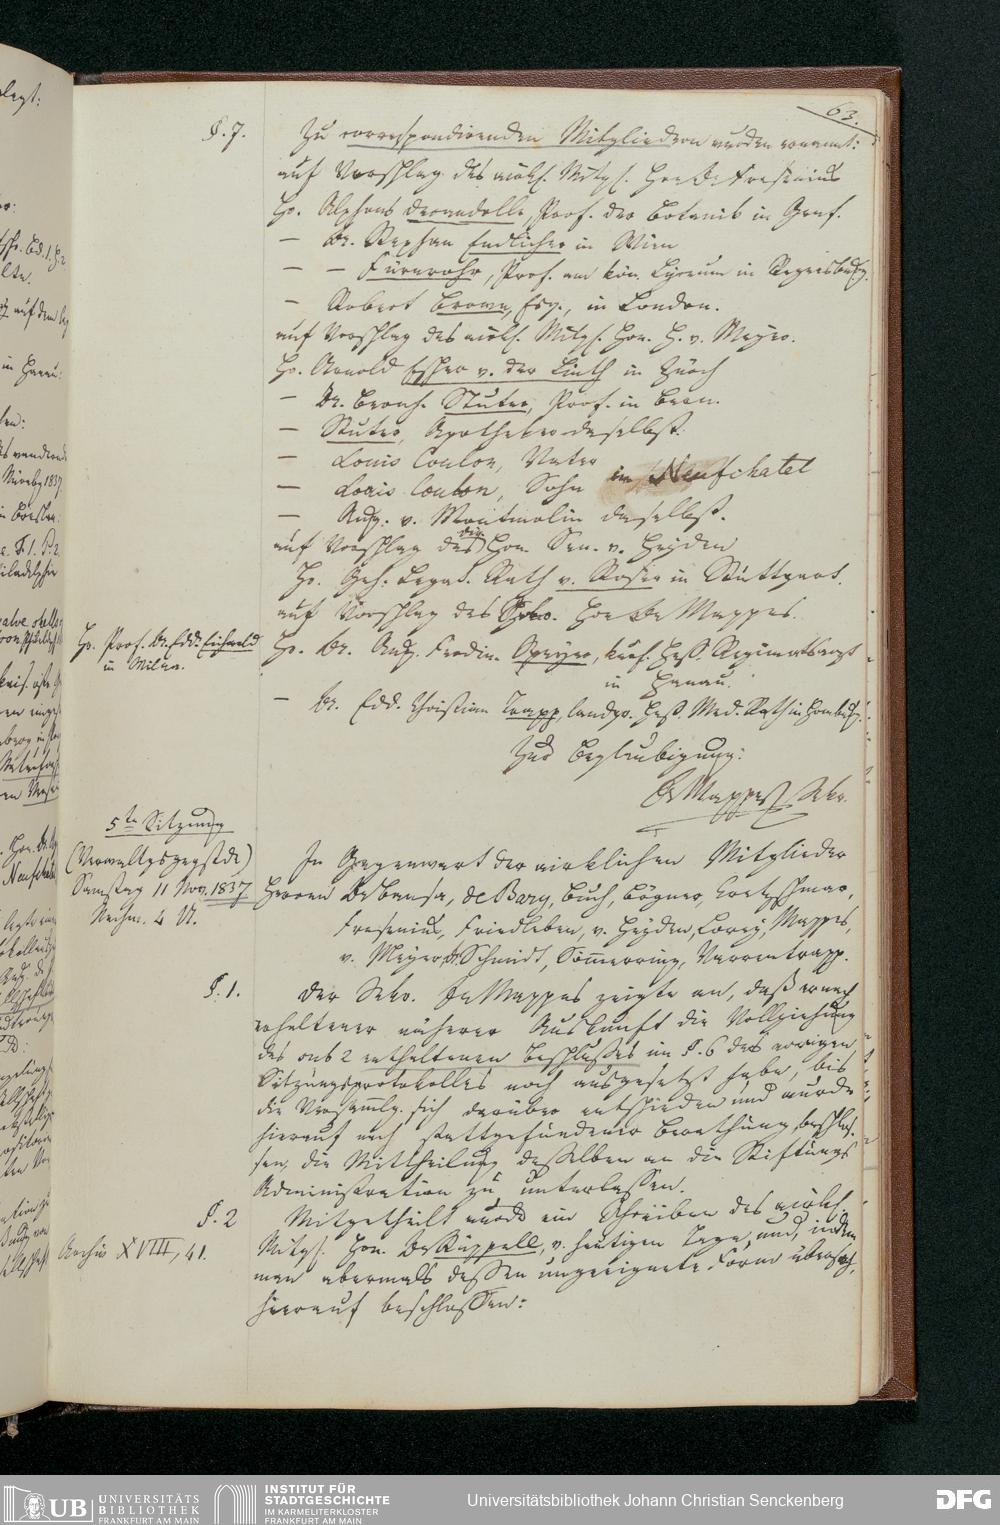 63.
§. 7.
Zu correspondirenden Mitgliedern wurden ernannt:
auf Vorschlag des wirkl. Mitgl. Hrn Dr Fresenius
Hr. Alphons Decandolle, Prof. der Botanik in Genf.
— Dr. Stephan Endlicher in Wien
— — Fürnrohr, Prof. am kön. Lyceum in Regensburg.
— Robert Brown, Esq., in London.
auf Vorschlag des wirkl. Mitgl. Hrn. H. v. Meyer.
Hr. Arnold Escher v. der Linth in Zürch
— Dr. Bernh. Studer, Prof. in Bern.
— Studer, Apotheker daselbst.
— Louis Coulon, Vater
in Neufchatel
— Louis Coulon, Sohn
— Aug. v. Montmolin daselbst.
auf Vorschlag des Hrn. Sen. v. Heyden
Hr. Geh. Legat. Rath v. Roser in Stuttgart.
auf Vorschlag des Hrn Dr Mappes.
Hr. Prof. Dr. Edd. Eichwald
in Wilna.
Hr. Dr. Aug. Ferdin. Speyer, kurf. Hess. Regimentsarzt
in Hanau.
— Dr. Edd. Christian Trapp, landgr. Hess. Med. Rath in Homburg.
Zur Beglaubigung:
Dr Mappes, Sekr.
5te Sitzung
(Verwaltgsgegstde)
Samstag 11 Nov. 1837.
Nachm. 4 U.
In Gegenwart der wirklichen Mitglieder
Herren Dr Bansa, de Bary, Buch, Bögner, Cretzschmar,
Fresenius, Friedleben, v. Heyden, Lorey, Mappes,
v. Meyer, Dr Schmidt, Sömmerring, Varrentrapp.
§. 1.
Der Sekr. Dr Mappes zeigte an, daß er nach
erhaltener näherer Auskunft die Vollziehung
des sub 2 enthaltenen Beschlußes im §. 6 des vorigen
Sitzungsprotokolles noch ausgesetzt habe, bis
die Versammlg. sich darüber entschieden und wurde
hierauf nach stattgefundener Berathung beschlos-
sen, die Mittheilung desselben an die Stiftungs
Administration zu unterlassen.
§. 2
Archiv XVIII, 41.
Mitgetheilt wurde ein Schreiben des wirkl.
Mitgl. Hrn. Dr Rüppell, v. heutigen Tage, und, indem
man abermals dessen ungeeignete Form übersah,
hierauf beschlossen:
UB UNIVERSITÄTS
BIBLIOTHEK
FRANKFURT AM MAIN
INSTITUT FÜR
STADTGESCHICHTE
IM KARMELITERKLOSTER
FRANKFURT AM MAIN
Universitätsbibliothek Johann Christian Senckenberg
DFG